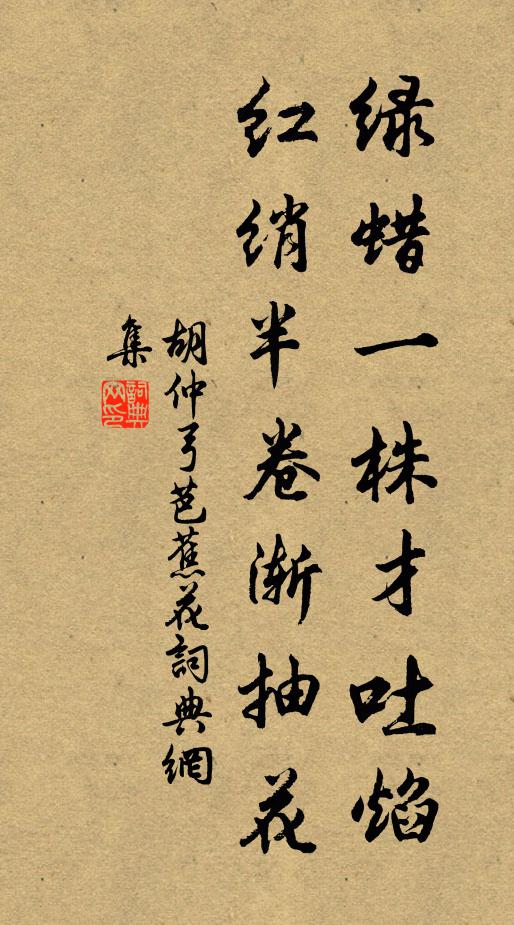 绿蜡一株才吐焰
红绡半卷渐抽花
胡仲弓芭蕉花詞典網
集
詞典
网印